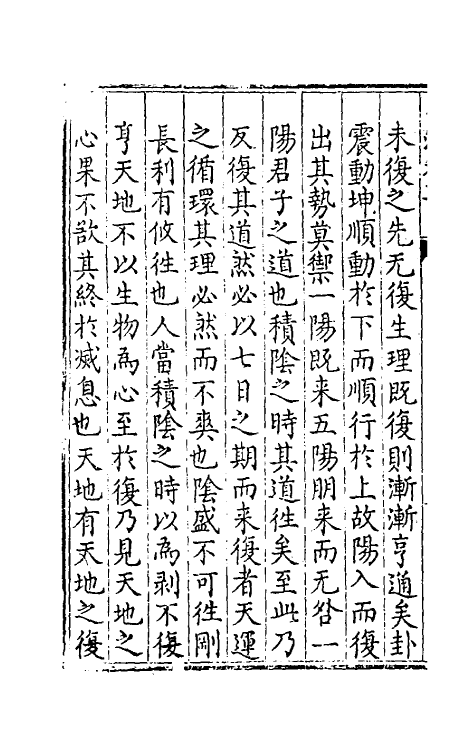 未復之先无復生理既復則漸漸亨通矣卦
震動坤順動扵下而順行扵上故陽入而復
出其勢莫禦一陽既来五陽朋来而无咎一
陽君子之道也積陰之時其道徃矣至此乃
反復其道然必以七日之期而来復者天運
之循環其理必然而不爽也陰盛不可徃剛
長利有攸徃也人當積陰之時以為剥不復
亨天地不以生物為心至扵復乃見天地之
心果不欲其終扵滅息也天地有天地之復